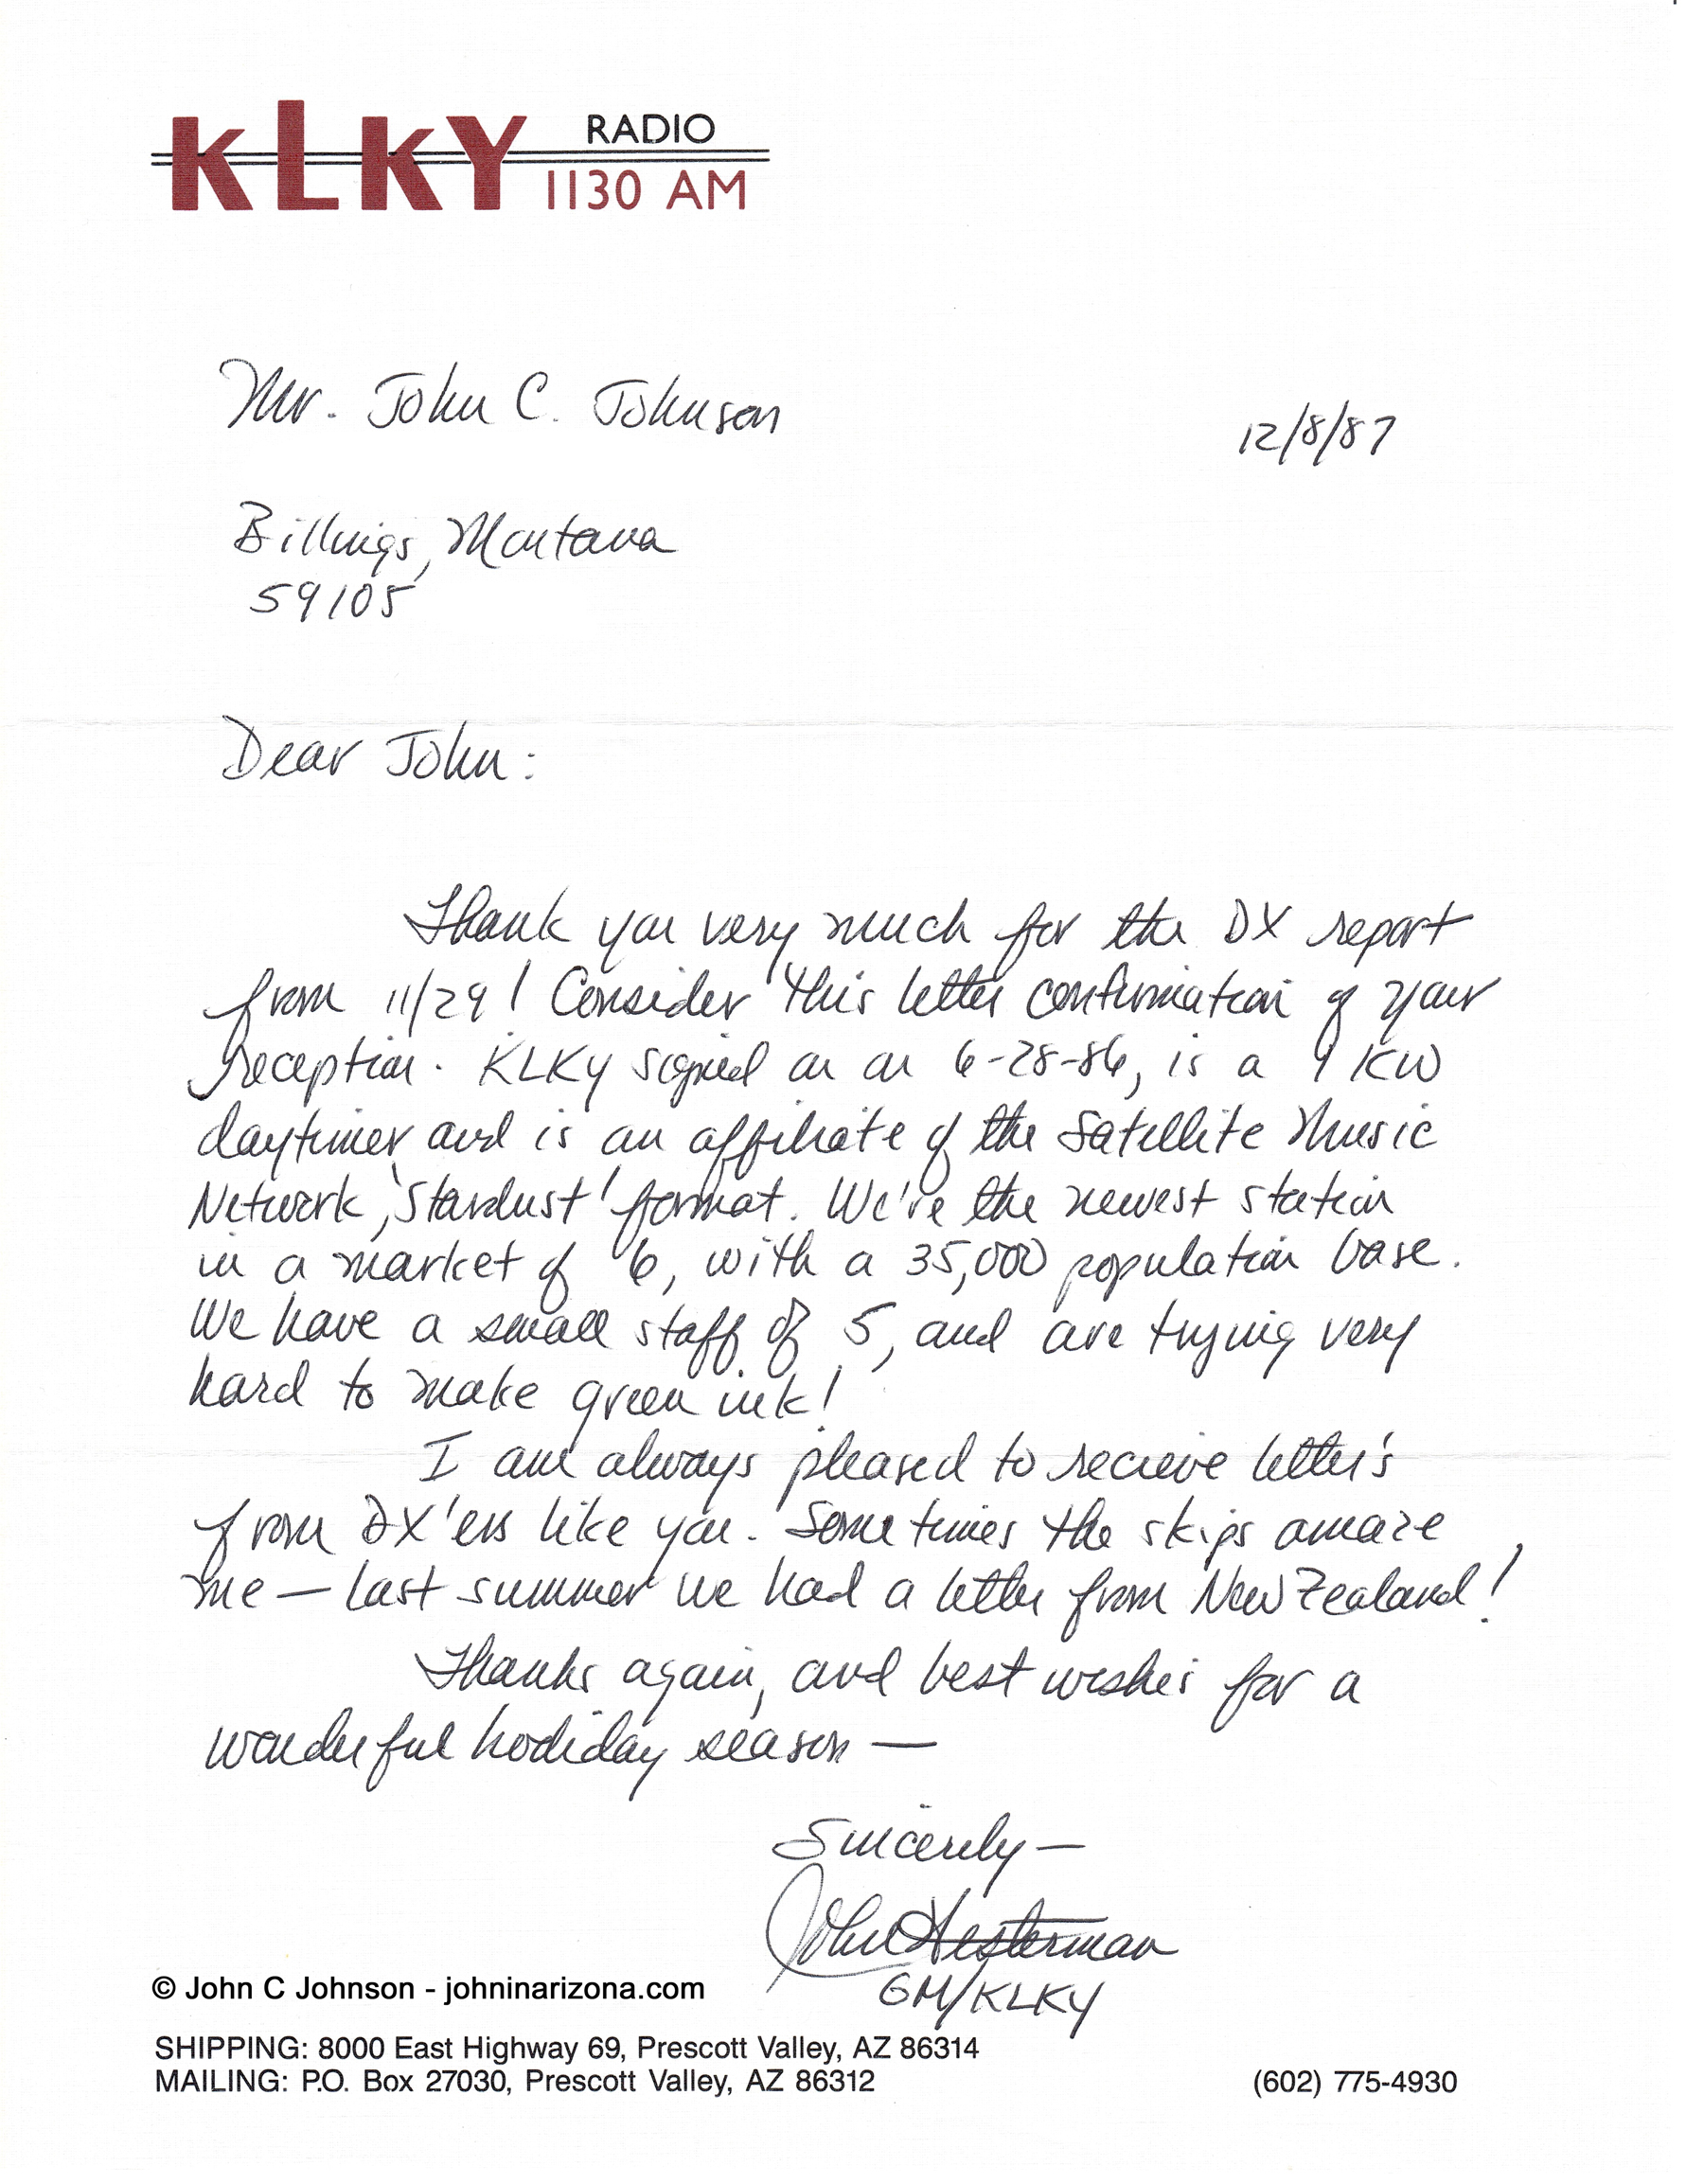 KLKY RADIO
1130 AM
Mr. John C. Johnson
12/8/87
Billings, Montana
59105
Dear John:
Thank you very much for the DX report
from 11/29! Consider this letter confirmation of your
reception. KLKY signed on on 6-28-86, is a 1 KW
daytimer and is an affiliate of the Satellite Music
Network, 'Stardust' format. We're the newest station
in a market of 6, with a 35,000 population base.
We have a small staff of 5, and are trying very
hard to make green ink!
I am always pleased to recieve letter's
from DX'ers like you. Sometimes the skips amaze
me — last summer we had a letter from New Zealand!
Thanks again, and best wishes for a
wonderful hodiday season —
Sincerely —
John Hesterman
GM/KLKY
© John C Johnson - johninarizona.com
SHIPPING: 8000 East Highway 69, Prescott Valley, AZ 86314
MAILING: P.O. Box 27030, Prescott Valley, AZ 86312
(602) 775-4930